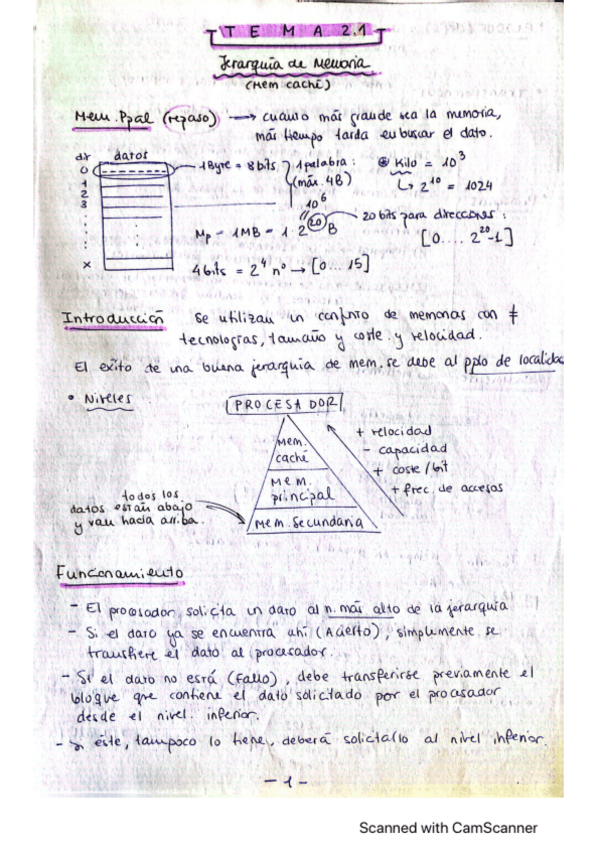 TEMA 2.1
Jerarquía de Memoria
(Mem caché)
Mem. Ppal (repaso) → cuanto más grande sea la memoria,
más tiempo tarda en buscar el dato.
dir datos
0
1
2
3
x
1 Byte = 8 bits
1 palabra:
(máx. 4B)
Kilo = 10³
↳ 2¹⁰ = 1024
10⁶
Mp - 1MB = 1 · 2²⁰ B
20 bits para direcciones:
[0.... 2²⁰-1]
4 bits = 2⁴ nº → [0 ... 15]
Introducción Se utilizan un conjunto de memorias con ≠
tecnologías, tamaño y coste y velocidad.
El exito de una buena jerarquía de mem. se debe al ppio de localidad
• Niveles
PROCESADOR
Mem.
caché
Mem.
principal
Mem. Secundaria
+ velocidad
- capacidad
+ coste/bit
+ frec. de accesos
todos los
datos están abajo
y van hacia arriba.
Funcionamiento
- El procesador solicita un dato al n. más alto de la jerarquía
- Si el dato ya se encuentra ahí (Acierto), simplemente se
transfiere el dato al procesador.
- Si el dato no está (Fallo), debe transferirse previamente el
bloque que contiene el dato solicitado por el procesador
desde el nivel inferior.
- Si éste, tampoco lo tiene, deberá solicitarlo al nivel inferior.
- 1 -
Scanned with CamScanner